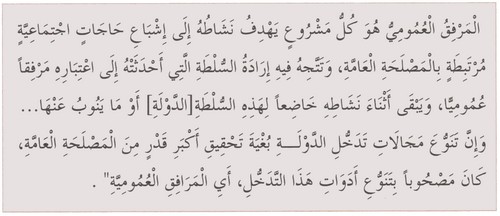 الْمَرْفِقُ الْعُمُومِيُّ هُوَ كُلُّ مَشْرُوعٍ يَهْدِفُ نَشَاطُهُ إِلَى إِشْبَاعِ حَاجَاتٍ اجْتِمَاعِيَّةٍ
مُرْتَبِطَةٍ بِالْمَصْلَحَةِ الْعَامَّةِ، وَتَتَّجِهُ فِيهِ إِرَادَةُ السُّلْطَةِ الَّتِي أَحْدَثَتْهُ إِلَى اعْتِبَارِهِ مَرْفِقاً
عُمُومِيًّا، وَيَبْقَى أَثْنَاءَ نَشَاطِهِ خَاضِعاً لِهَذِهِ السُّلْطَةِ[الدَّوْلَةِ] أَوْ مَا يَنُوبُ عَنْهَا...
وَإِنَّ تَنَوُّعَ مَجَالَاتِ تَدَخُّلِ الدَّوْلَـــةِ بُغْيَةَ تَحْقِيقِ أَكْبَرِ قَدْرٍ مِنَ الْمَصْلَحَةِ الْعَامَّةِ،
كَانَ مَصْحُوباً بِتَنَوُّعِ أَدَوَاتِ هَذَا التَّدَخُّلِ، أَيِ الْمَرَافِقِ الْعُمُومِيَّةِ" .